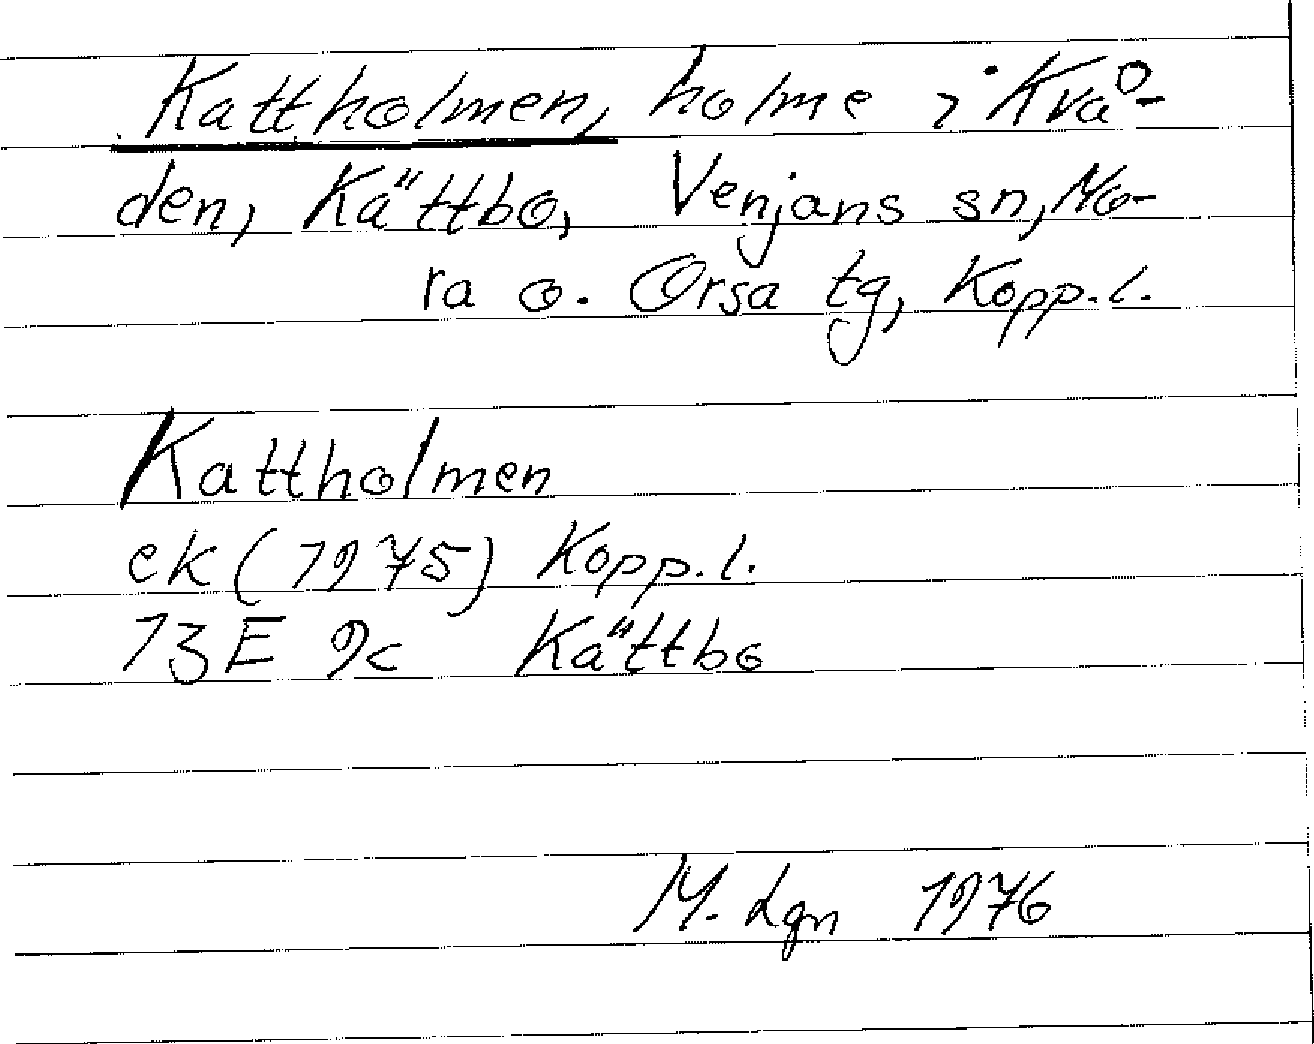 Kattholmen, holme i Krå-
den, Kättbo, Venjans sn, Mo-
ra o. Orsa tg, Kopp. l.
Kattholmen
ek (1975) Kopp. l.
13E 9c Kättbo
M. Lgn 1976